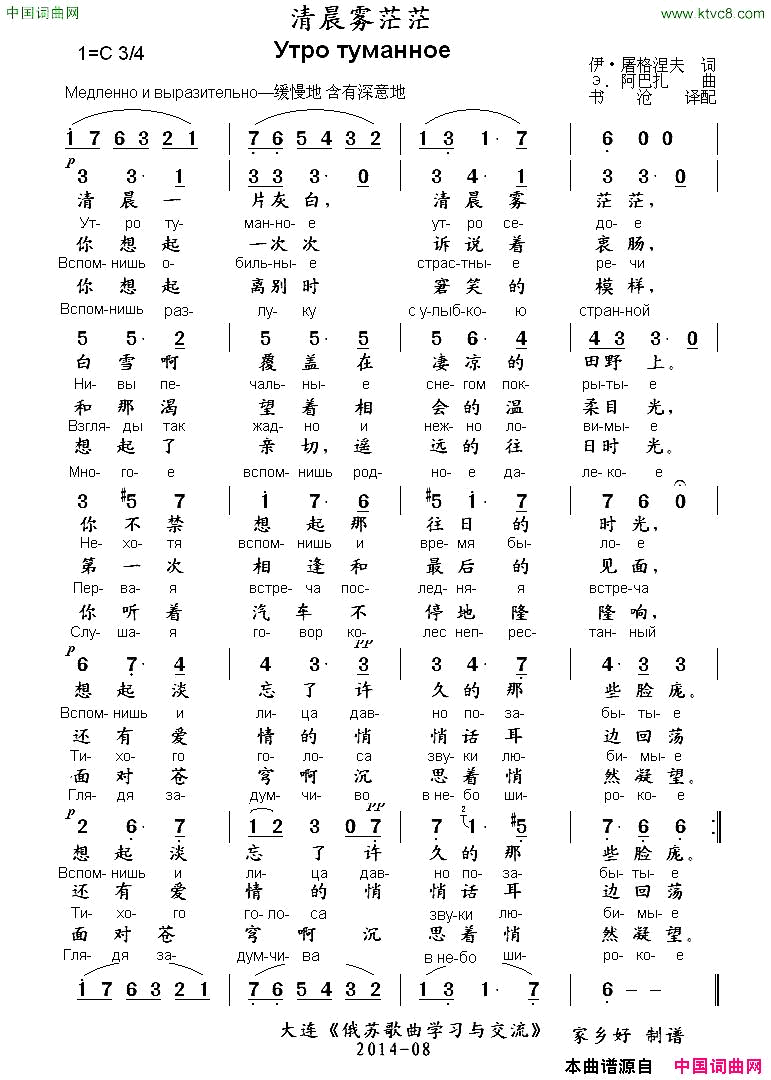 中国词曲网
清晨雾茫茫
www.ktvc8.com
1=C 3/4
Утро туманное
伊·屠格涅夫 词
Э. 阿巴扎 曲
书 沧 译配
Медленно и выразительно—缓慢地 含有深意地
1 7 6 3 2 1 | 7 6 5 4 3 2 | 1 3 1· 7 | 6 0 0
p
3 3· 1 | 3 3 3· 0 | 3 4· 1 | 3 3· 0
清 晨 一 片灰白， 清 晨 雾 茫 茫，
Ут- ро ту- ман-но- е ут- ро се- до- е
你 想 起 一次次 诉 说 着 衷 肠，
Вспом-нишь о- биль-ны- е страс-тны- е ре- чи
你 想 起 离别时 窘 笑 的 模 样，
Вспом-нишь раз- лу- ку с у-лыб-ко- ю стран-ной
5 5· 2 | 5 5· 5 | 5 6· 4 | 4 3 3· 0
白 雪 啊 覆 盖 在 凄 凉 的 田 野 上。
Ни- вы пе- чаль- ны- е сне- гом пок- ры-ты- е
和 那 渴 望 着 相 会 的 温 柔目 光，
Взгля- ды так жад- но и неж-но ло- ви-мы-е
想 起 了 亲 切，遥 远 的 往 日时 光。
Мно- го- е вспом- нишь род- но- е да- ле- ко- е
3 #5 7 | 1 7· 6 | #5 1· 7 | 7 6 0
你 不 禁 想 起 那 往 日 的 时 光，
Не- хо- тя вспом-нишь и вре- мя бы- ло- е
第 一 次 相 逢 和 最 后 的 见 面，
Пер- ва- я встре- ча пос- лед- ня- я встре-ча
你 听 着 汽 车 不 停 地 隆 隆 响，
Слу- ша- я го- вор ко- лес неп- рес- тан- ный
p pp
6 7· 4 | 4 3· 3 | 3 4· 7 | 4· 3 3
想 起 淡 忘 了 许 久 的 那 些 脸 庞。
Вспом-нишь и ли- ца дав- но по- за- бы- ты- е
还 有 爱 情 的 悄 悄 话 耳 边 回 荡
Ти- хо- го го- ло- са зву- ки лю- би- мы- е
面 对 苍 穹 啊 沉 思 着 悄 然 凝 望。
Гля- дя за- дум- чи- во в не- бо ши- ро- ко- е
p pp
2 6· 7 | 1 2 3 0 7 | 7 1· #5 | 7· 6 6 :‖
想 起 淡 忘 了 许 久 的 那 些 脸 庞。
Вспом-нишь и ли- ца дав- но по- за- бы- ты- е
还 有 爱 情 的 悄 悄 话 耳 边 回 荡
Ти- хо- го го- ло- са зву-ки лю- би- мы- е
面 对 苍 穹 啊 沉 思 着 悄 然 凝 望。
Гля- дя за- дум-чи- ва в не-бо ши- ро- ко- е
1 7 6 3 2 1 | 7 6 5 4 3 2 | 1 3 1· 7 | 6 — — ‖
大连《俄苏歌曲学习与交流》 家乡好 制谱
2014-08
本曲谱源自 中国词曲网